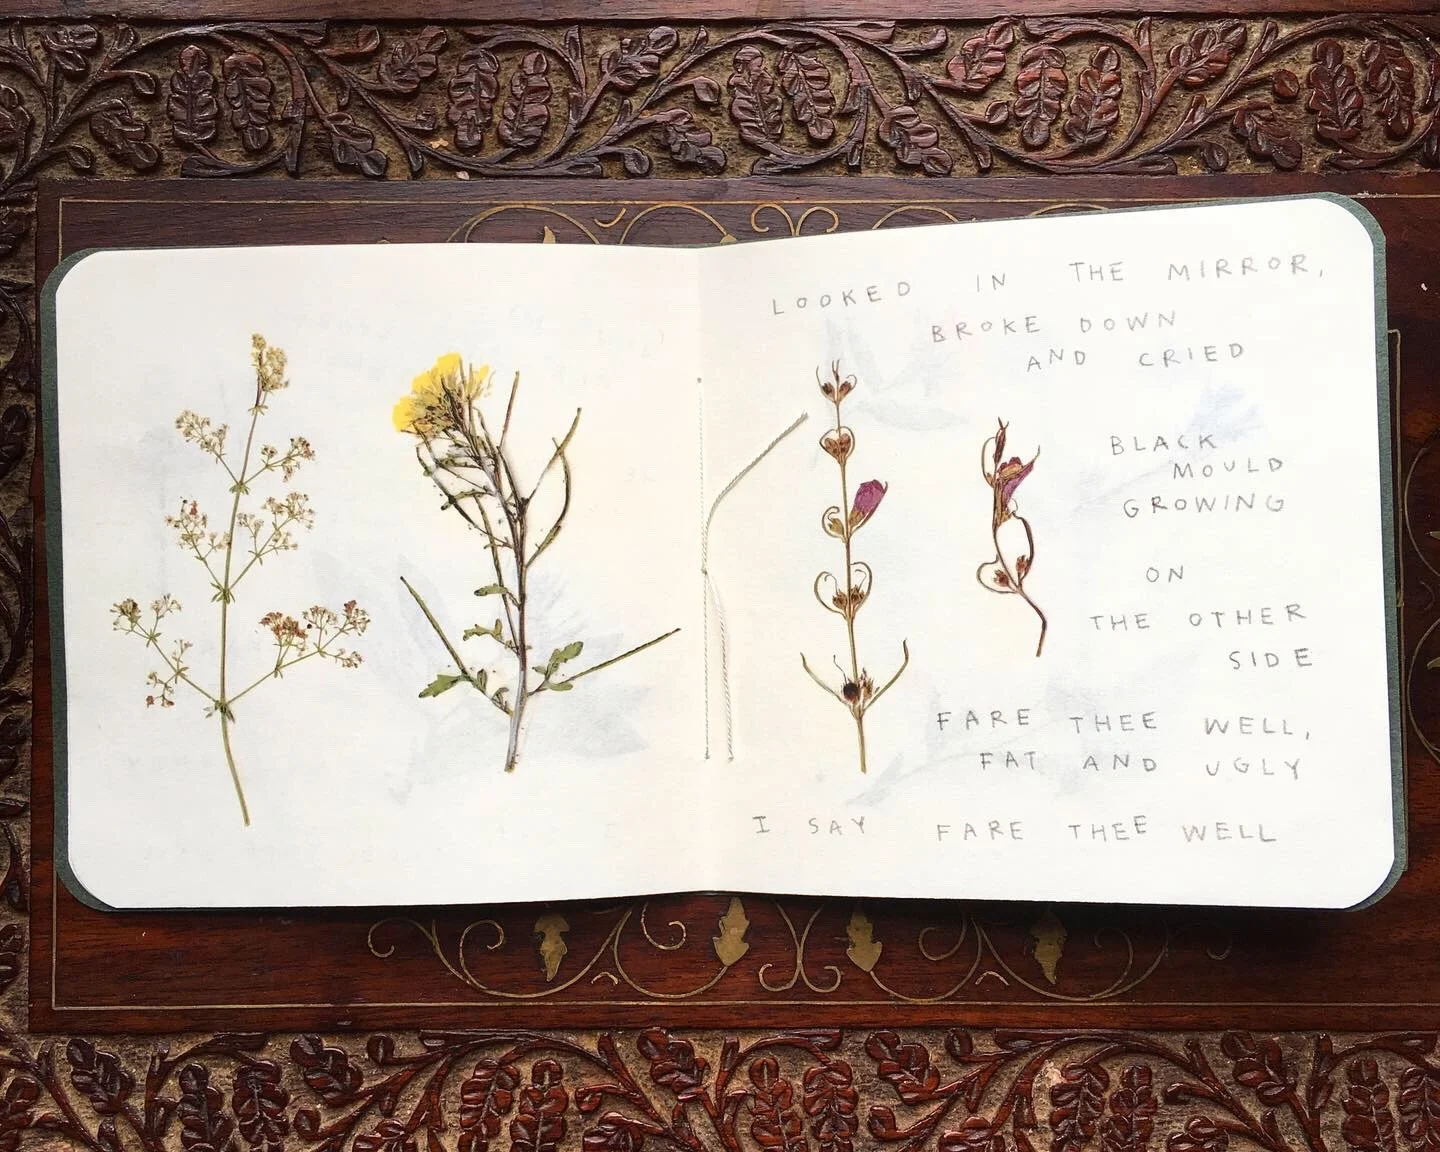 LOOKED IN THE MIRROR,
BROKE DOWN
AND CRIED
BLACK
MOULD
GROWING
ON
THE OTHER
SIDE
FARE THEE WELL,
FAT AND UGLY
I SAY FARE THEE WELL